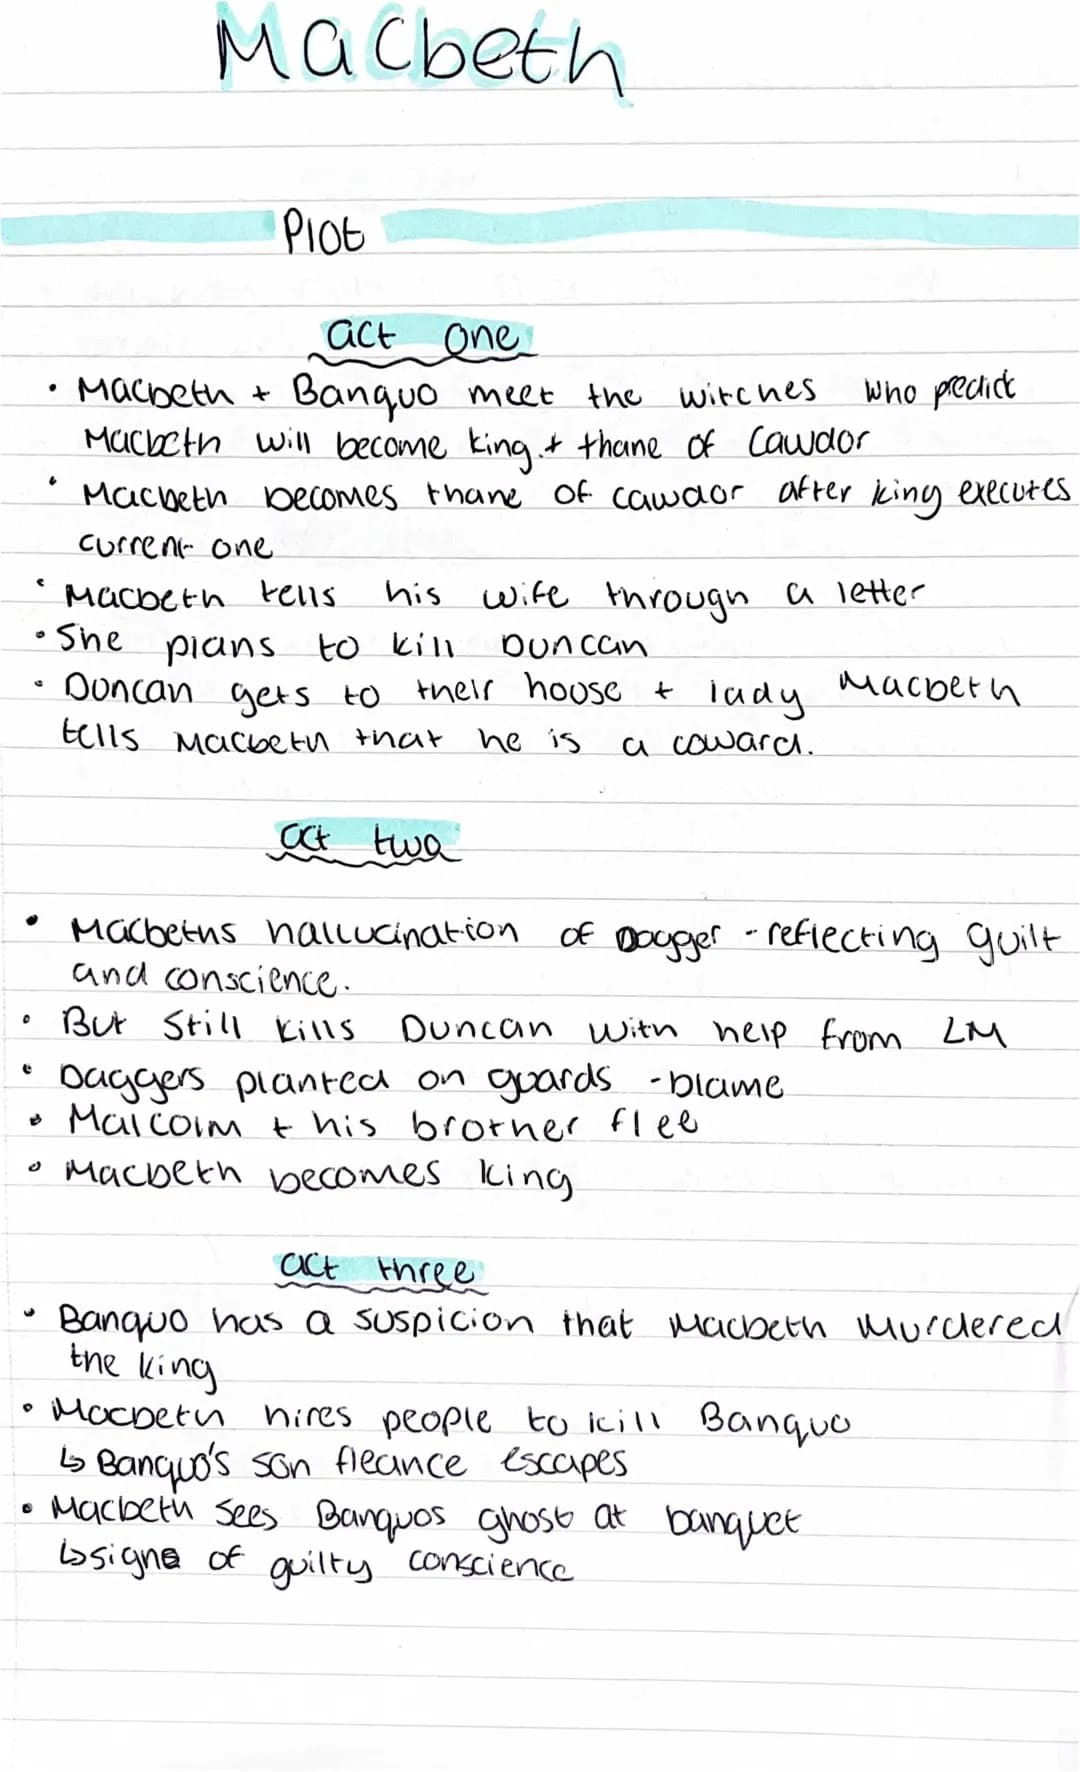 Macbeth
Plot
act one
• Macbeth + Banquo meet the witches who predict
Macbeth will become king + thane of Cawdor
• Macbeth becomes thane of cawdor after king executes
current one
• Macbeth tells his wife through a letter
• She plans to kill Duncan
• Duncan gets to their house + lady Macbeth
tells Macbeth that he is a coward.
act two
• Macbeths hallucination of Dagger - reflecting guilt
and conscience.
• But Still kills Duncan with help from LM
• Daggers planted on guards - blame
• Malcolm + his brother flee
• Macbeth becomes king
act three
• Banquo has a suspicion that Macbeth Murdered
the king
• Macbeth hires people to kill Banquo
↳ Banquo's son fleance escapes
• Macbeth sees Banquos ghost at banquet
↳ signs of guilty conscience